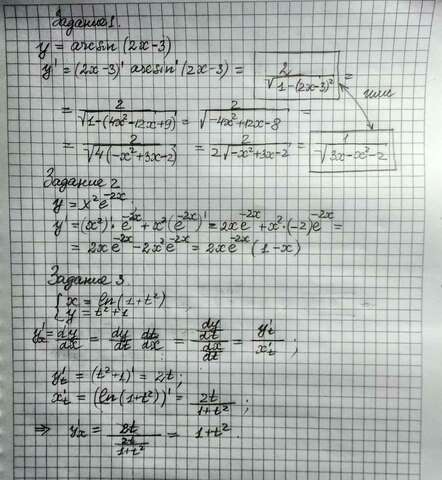 Задание 1.
y = arcsin (2x-3)
y' = (2x-3)' arcsin' (2x-3) = 2/√(1-(2x-3)²) =
или
= 2/√(1-(4x²-12x+9)) = 2/√(-4x²+12x-8) =
= 2/√(4(-x²+3x-2)) = 2/(2√(-x²+3x-2)) = 1/√(3x-x²-2)
Задание 2
y = x²e^(-2x);
y' = (x²)'·e^(-2x) + x²(e^(-2x))' = 2xe^(-2x) + x²·(-2)e^(-2x) =
= 2xe^(-2x) - 2x²e^(-2x) = 2xe^(-2x) (1-x)
Задание 3.
{x = ln(1+t²)
{y = t²+1
y'x = dy/dx = dy/dt dt/dx = (dy/dt)/(dx/dt) = y't/x't ;
y't = (t²+1)' = 2t;
x't = (ln(1+t²))' = 2t/(1+t²) ;
⇒ yx = 2t/(2t/(1+t²)) = 1+t².